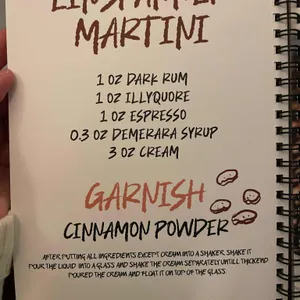 MARTINI
1 OZ DARK RUM
1 OZ ILLYQUORE
1 OZ ESPRESSO
0.3 OZ DEMERARA SYRUP
3 OZ CREAM
GARNISH
CINNAMON POWDER
AFTER PUTTING ALL INGREDIENTS EXCEPT CREAM INTO A SHAKER. SHAKE IT
POUR THE LIQUID INTO A GLASS AND SHAKE THE CREAM SEPARATELY UNTILL THICKEND
POURED THE CREAM AND FLOAT IT ON TOP OF THE GLASS